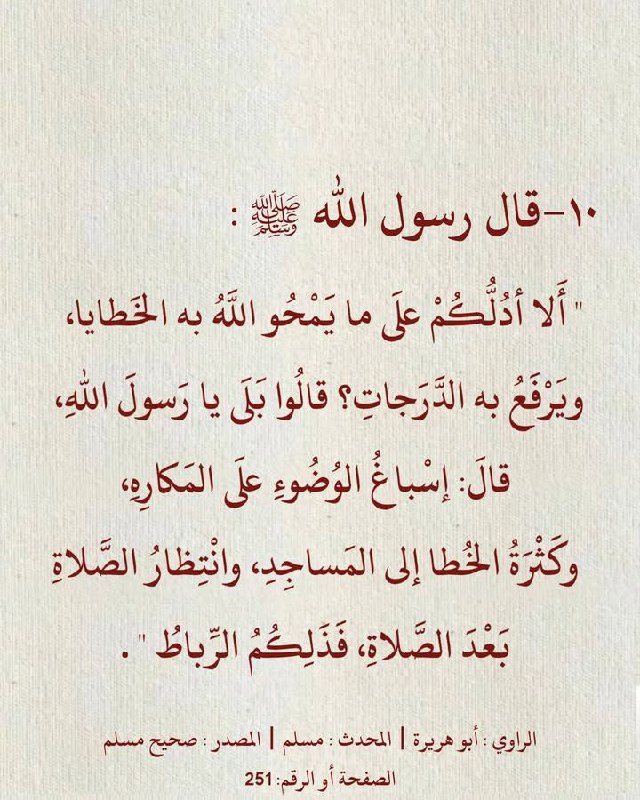 ١٠-قال رسول الله ﷺ :
" أَلا أدُلُّكُمْ علَى ما يَمْحُو اللَّهُ به الخَطايا،
ويَرْفَعُ به الدَّرَجاتِ؟ قالُوا بَلَى يا رَسولَ اللهِ،
قالَ: إسْباغُ الوُضُوءِ علَى المَكارِهِ،
وكَثْرَةُ الخُطا إلى المَساجِدِ، وانْتِظارُ الصَّلاةِ
بَعْدَ الصَّلاةِ، فَذَلِكُمُ الرِّباطُ " .
الراوي : أبو هريرة | المحدث : مسلم | المصدر : صحيح مسلم
الصفحة أو الرقم: 251